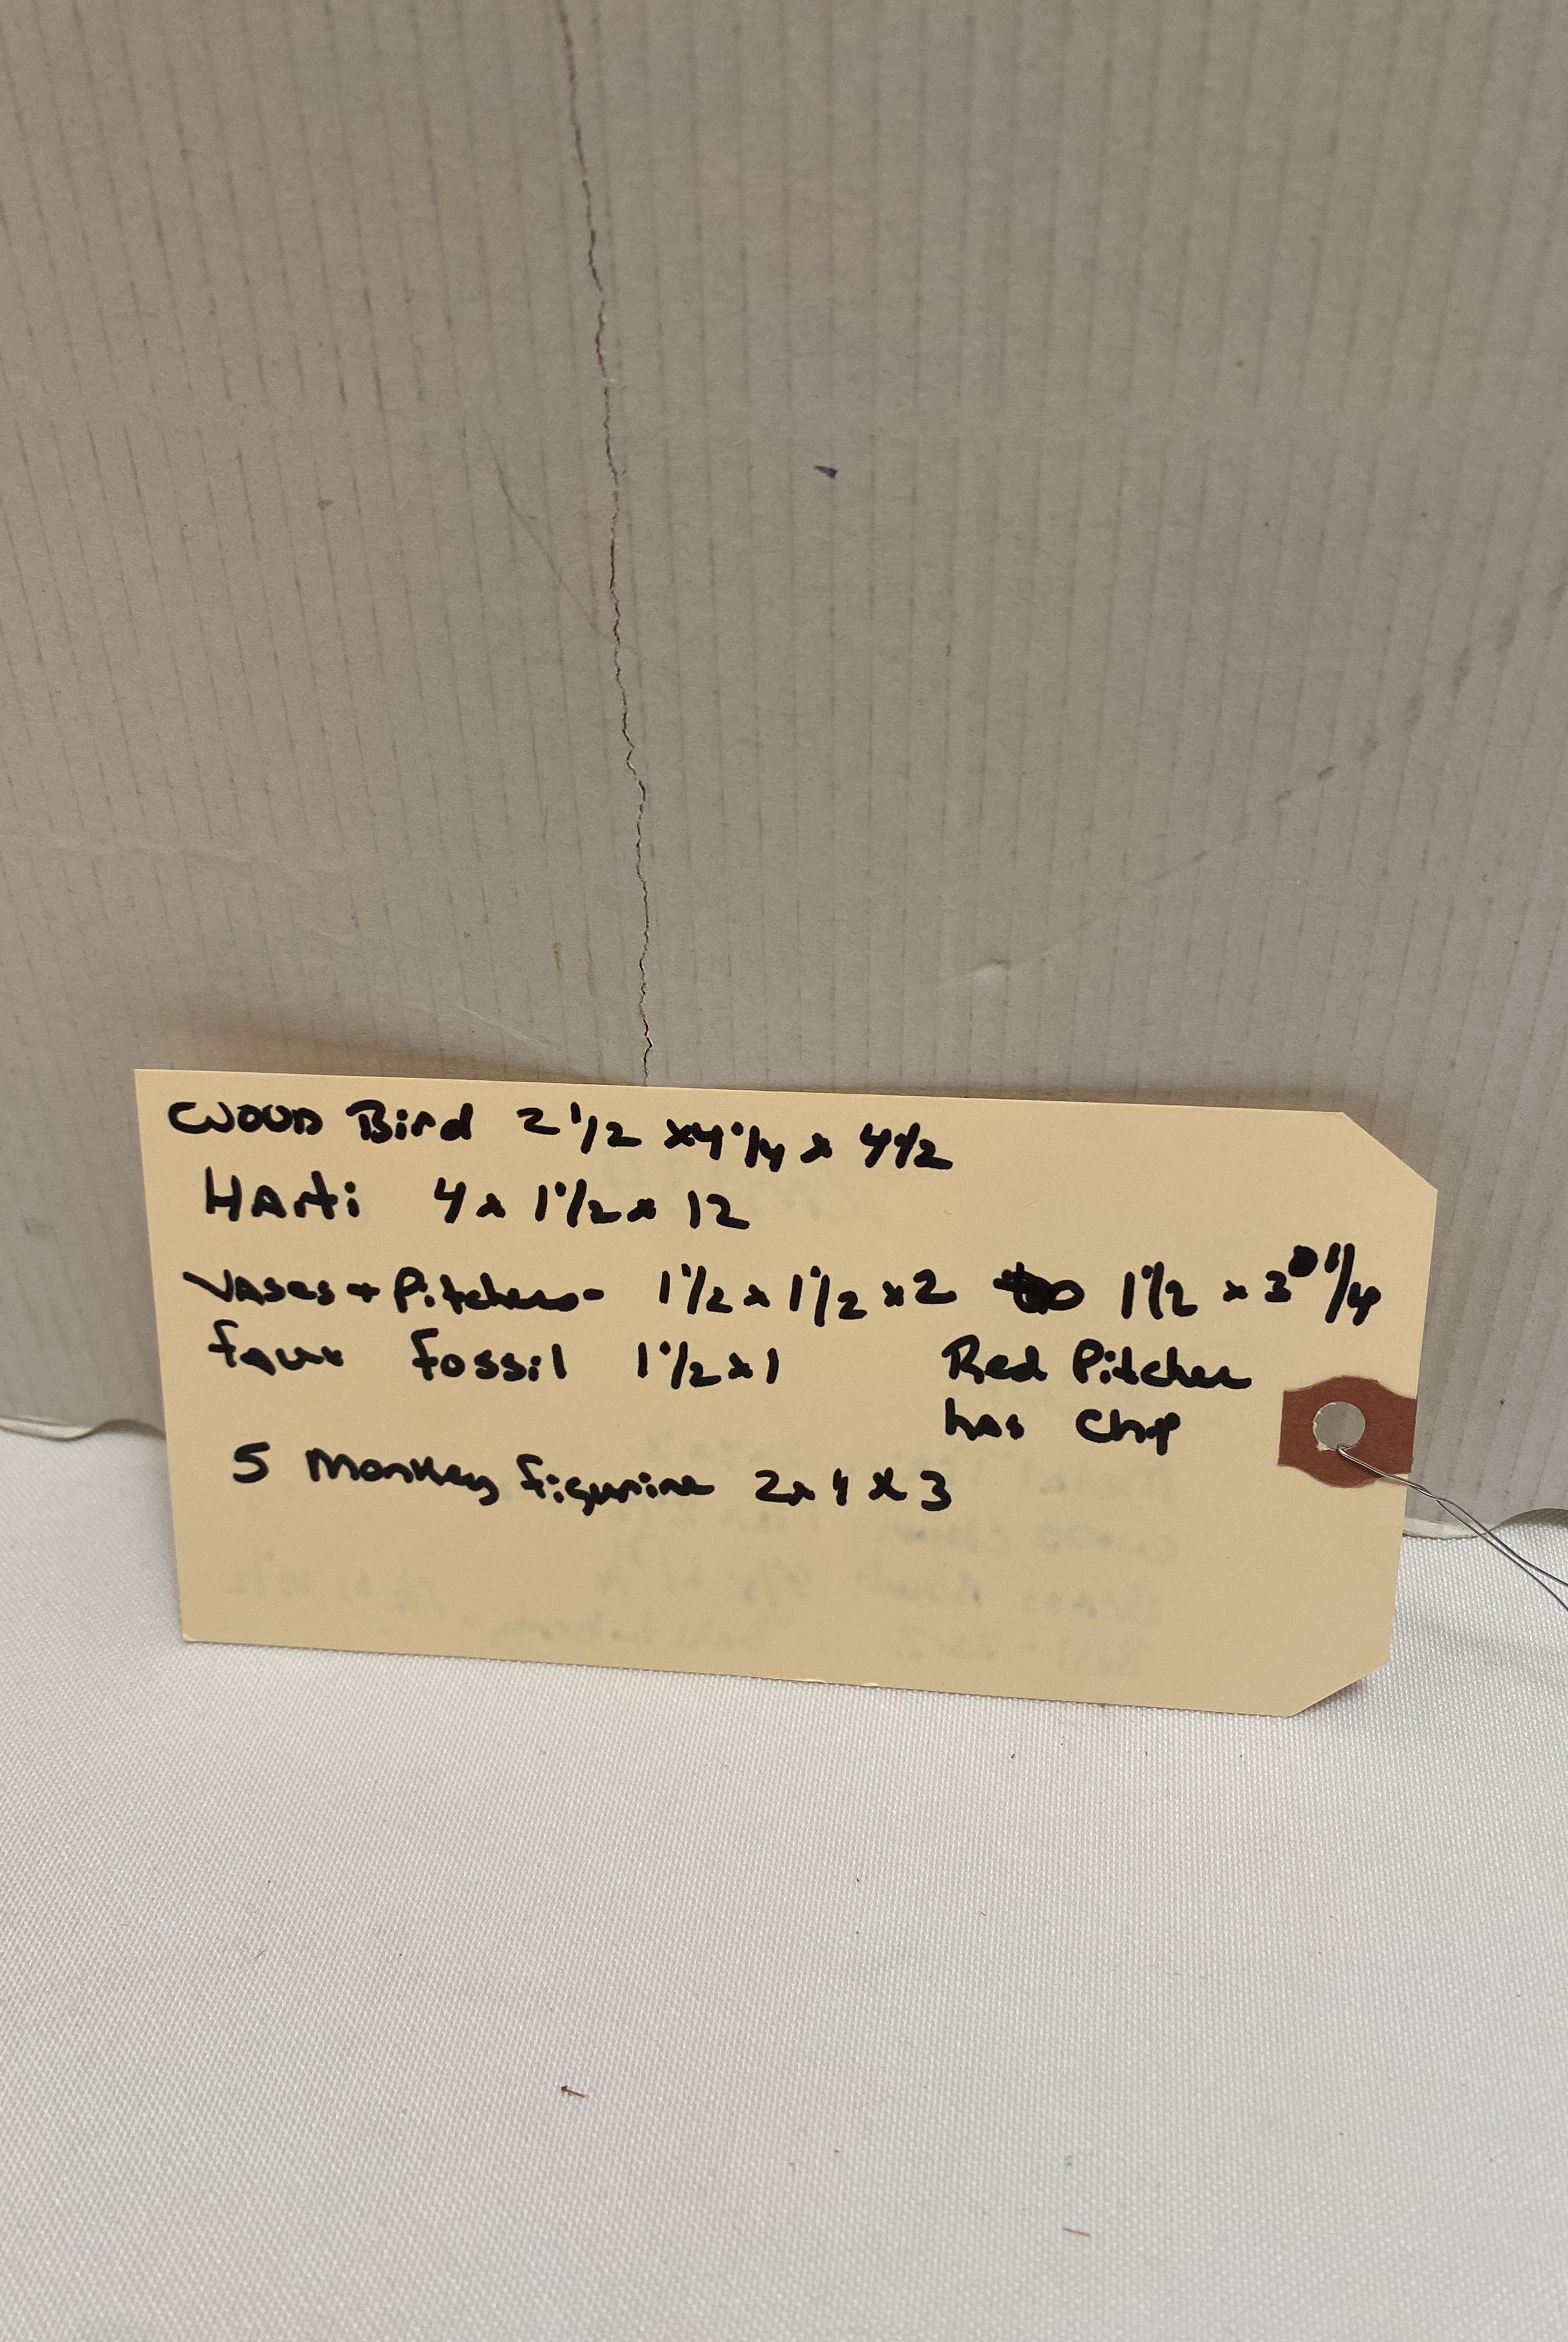 WOOD Bird 2 1/2 x 4 1/4 x 4 1/2
HAiti 4 x 1 1/2 x 12
VASes + Pitchers - 1 1/2 x 1 1/2 x 2 to 1 1/2 x 3 1/4
faux fossil 1 1/2 x 1 Red Pitcher
has Chip
5 Monkey figurine 2 x 4 x 3